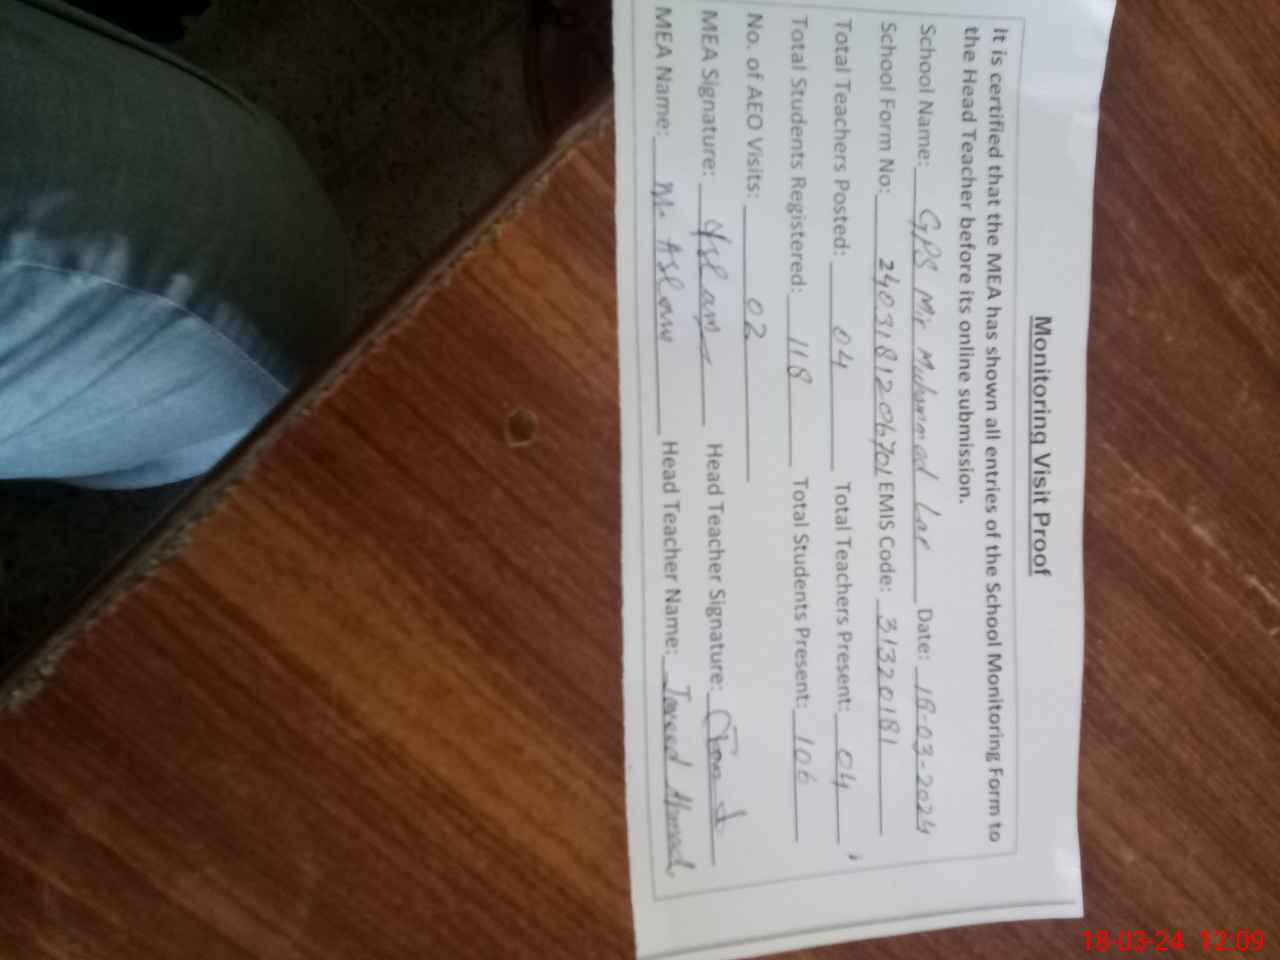 Monitoring Visit Proof
It is certified that the MEA has shown all entries of the School Monitoring Form to
the Head Teacher before its online submission.
School Name: GPS Mir Muhammad Lar Date: 18-03-2024
School Form No: 2403181206701 EMIS Code: 31320181
Total Teachers Posted: 04 Total Teachers Present: 04
Total Students Registered: 118 Total Students Present: 106
No. of AEO Visits: 02
MEA Signature: Aslam Head Teacher Signature:
MEA Name: M. Aslam Head Teacher Name: Javed Ahmad
18-03-24 12:09